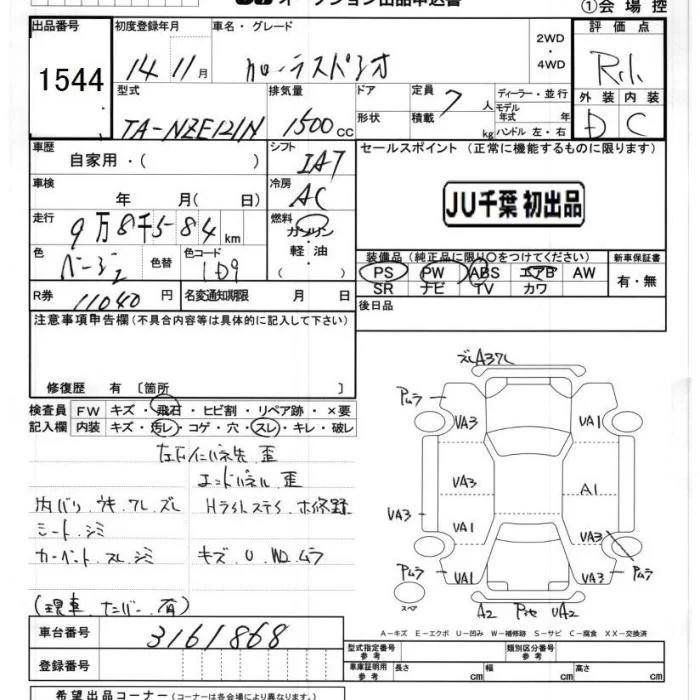 ①会場控
出品番号 初度登録年月 車名・グレード 2WD・4WD 評価点
1544 14 11月 カローラスパシオ R
型式 排気量 ドア 定員 7人 ディーラー・並行 外装 内装
TA-NZE121N 1500cc 形状 積載 kg モデル年式 年式 ハンドル 左・右 D C
車歴 自家用・( ) シフト IAT セールスポイント (正常に機能するものに限ります)
車検 年 月( 日) 冷房 AC JU千葉 初出品
走行 9万8千584km 燃料 ガソリン・軽油・( )
色 ベージュ 色替 色コード 4D9
装備品(純正品に限り○をつけてください) 新車保証書
PS PW ABS エアB AW 有・無
SR ナビ TV カワ
R券 11040円 名変通知期限 月 日 後日品
注意事項申告欄(不具合内容等は具体的に記入して下さい)
修復歴 有 〔箇所 〕
検査員記入欄 FW キズ・飛石・ヒビ割・リペア跡・×要
内装 キズ・汚レ・コゲ・穴・スレ・キレ・破レ
エンドパネル 歪
内バリ ウキ ワレ ズレ Hライトステイ
シート シミ
カーペット スレ シミ キズ U ムラ
(現車 ナンバー 有)
ズレA3ワレ
Pムラ VA3 VA1
VA3 A1
VA3 VA1 VA3
Pムラ VA1 VA3 Pムラ
スペア A2 UA2
A-キズ E-エクボ U-凹み W-補修跡 S-サビ C-腐食 XX-交換済
車台番号 3161868
型式指定番号 参考 類別区分番号 参考
登録番号 車庫証明用 参考 長さ cm 幅 cm 高さ cm
希望出品コーナー (コーナーは各会場により異なります。)